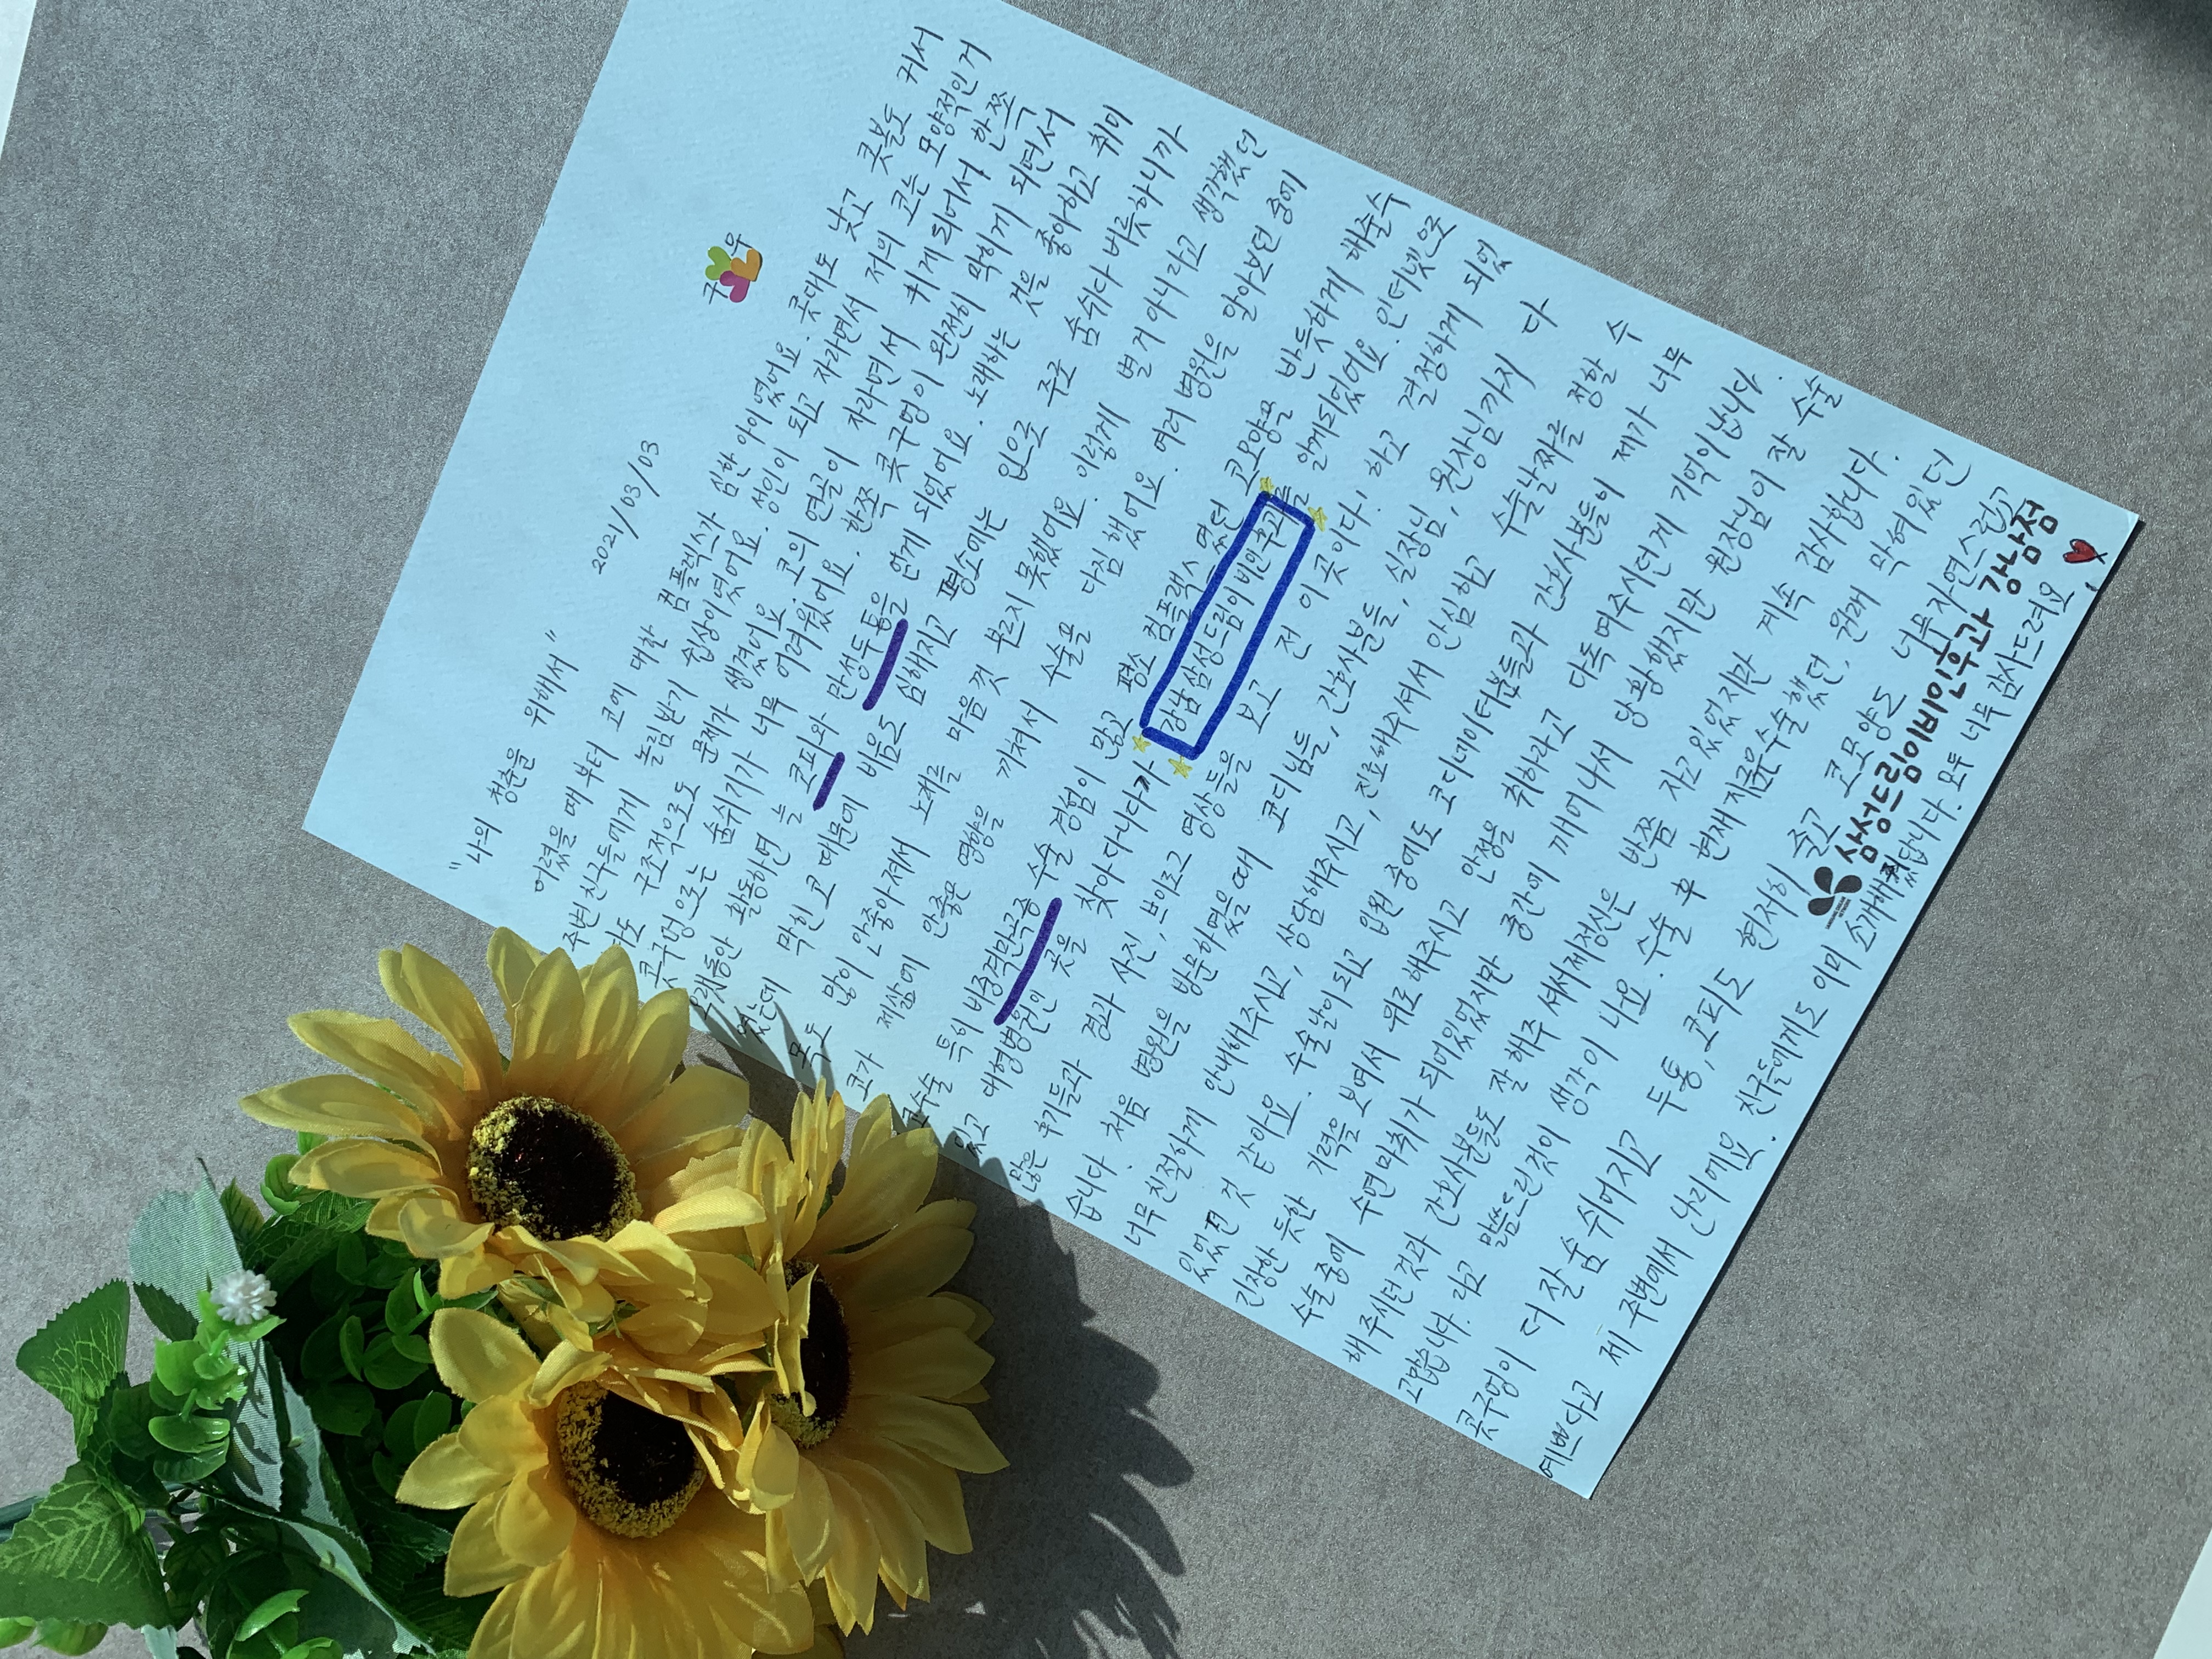 "나의 청춘을 위해서"
2021/03/03
구 우
어렸을 때부터 코에 대한 컴플렉스가 심한 아이였어요. 콧대도 낮고 콧볼도 커서
주변친구들에게 놀림받기 쉽상이였어요. 성인이 되고 자라면서 저의 코는 모양적인거
도 구조적으로도 문제가 생겼어요. 코의 연골이 자라면서 휘게되어서 한쪽
콧구멍으로는 숨쉬기가 너무 어려웠어요. 한쪽 콧구멍이 완전히 막히게 되면서
오래동안 활동하면 늘 코피와 만성두통을 얻게 되었어요. 노래하는 것을 좋아하고 취미
였는데 막힌코 때문에 비음도 심해지고 평소에는 입으로 주로 숨쉬다 버릇하니까
목도 많이 안좋아져서 노래를 마음껏 부르지 못했어요. 이렇게 별게 아니라고 생각했던
코가 제삶에 안좋은 영향을 끼쳐서 수술을 다짐했어요. 여러 병원을 알아보던 중에
코수술 특히 비중격만곡증 수술 경험이 많고 평소 컴플렉스였던 코모양을 반듯하게 해줄수
있고 대형병원인 곳을 찾아다니다가 강남삼성드림이비인후과를 알게되었어요. 인터넷으로
많은 후기들과 경과 사진, 브이로그 영상들을 보고 전 이곳이다! 하고 결정하게 되었
습니다. 처음 병원을 방문하였을때 코디님들, 간호사분들, 실장님, 원장님까지 다
너무친절하게 안내해주시고, 상담해주시고, 진료해주셔서 안심하고 수술날짜를 정할 수
있었던 것 같아요. 수술날이 되고 입원 중에도 코디네이터분들과 간호사분들이 제가 너무
긴장한 듯한 기력을 보여서 위로해주시고 안정을 취하라고 다독여주시던게 기억이납니다.
수술중에 수면마취가 되어있었지만 중간에 깨어나서 당황했지만 원장님이 잘 수술
해주시던것과 간호사분들도 잘해주셔서제정신은 반쯤 자고있었지만 계속 감사합니다.
고맙습니다. 라고 말씀드린것이 생각이 나요. 수술 후 현재지금은수술했던, 원래 막혀있던
콧구멍이 더 잘 숨쉬어지고 두통, 코피도 현저히 줄고 코모양도 너무자연스럽고
예쁘다고 제 주변에서 난리에요. 친구들에게도 이미 소개해줬답니다. 모두 너무 감사드려요!
삼성드림이비인후과 강남점